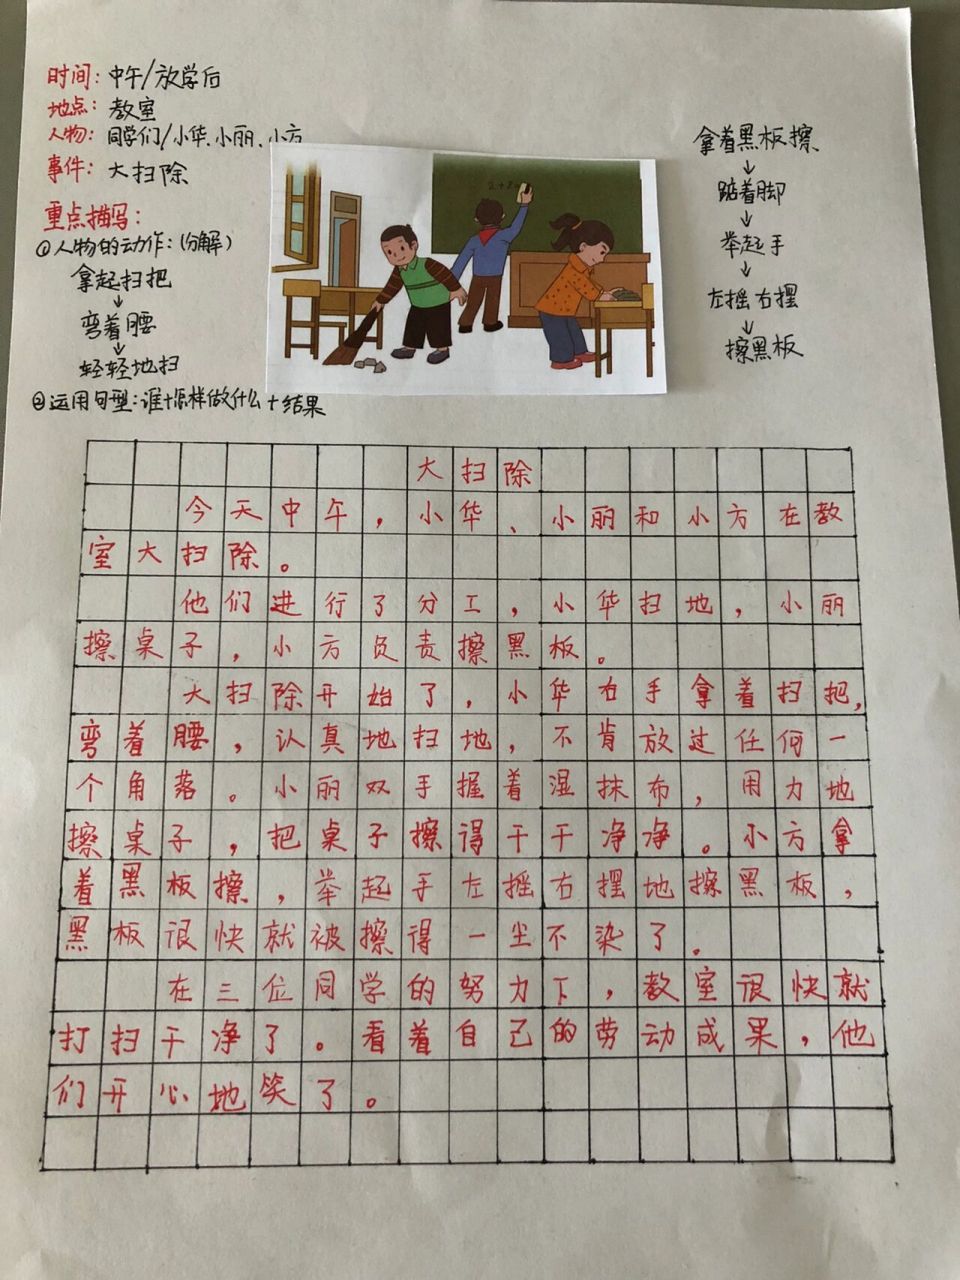 时间：中午/放学后
地点：教室
人物：同学们/小华、小丽、小方
事件：大扫除
重点描写：
①人物的动作：(分解)
拿起扫把
↓
弯着腰
↓
轻轻地扫
②运用句型：谁+怎样做什么+结果
拿着黑板擦
↓
踮着脚
↓
举起手
↓
左摇右摆
↓
擦黑板
大扫除
今天中午，小华、小丽和小方在教
室大扫除。
他们进行了分工，小华扫地，小丽
擦桌子，小方负责擦黑板。
大扫除开始了，小华右手拿着扫把，
弯着腰，认真地扫地，不肯放过任何一
个角落。小丽双手握着湿抹布，用力地
擦桌子，把桌子擦得干干净净。小方拿
着黑板擦，举起手左摇右摆地擦黑板，
黑板很快就被擦得一尘不染了。
在三位同学的努力下，教室很快就
打扫干净了。看着自己的劳动成果，他
们开心地笑了。